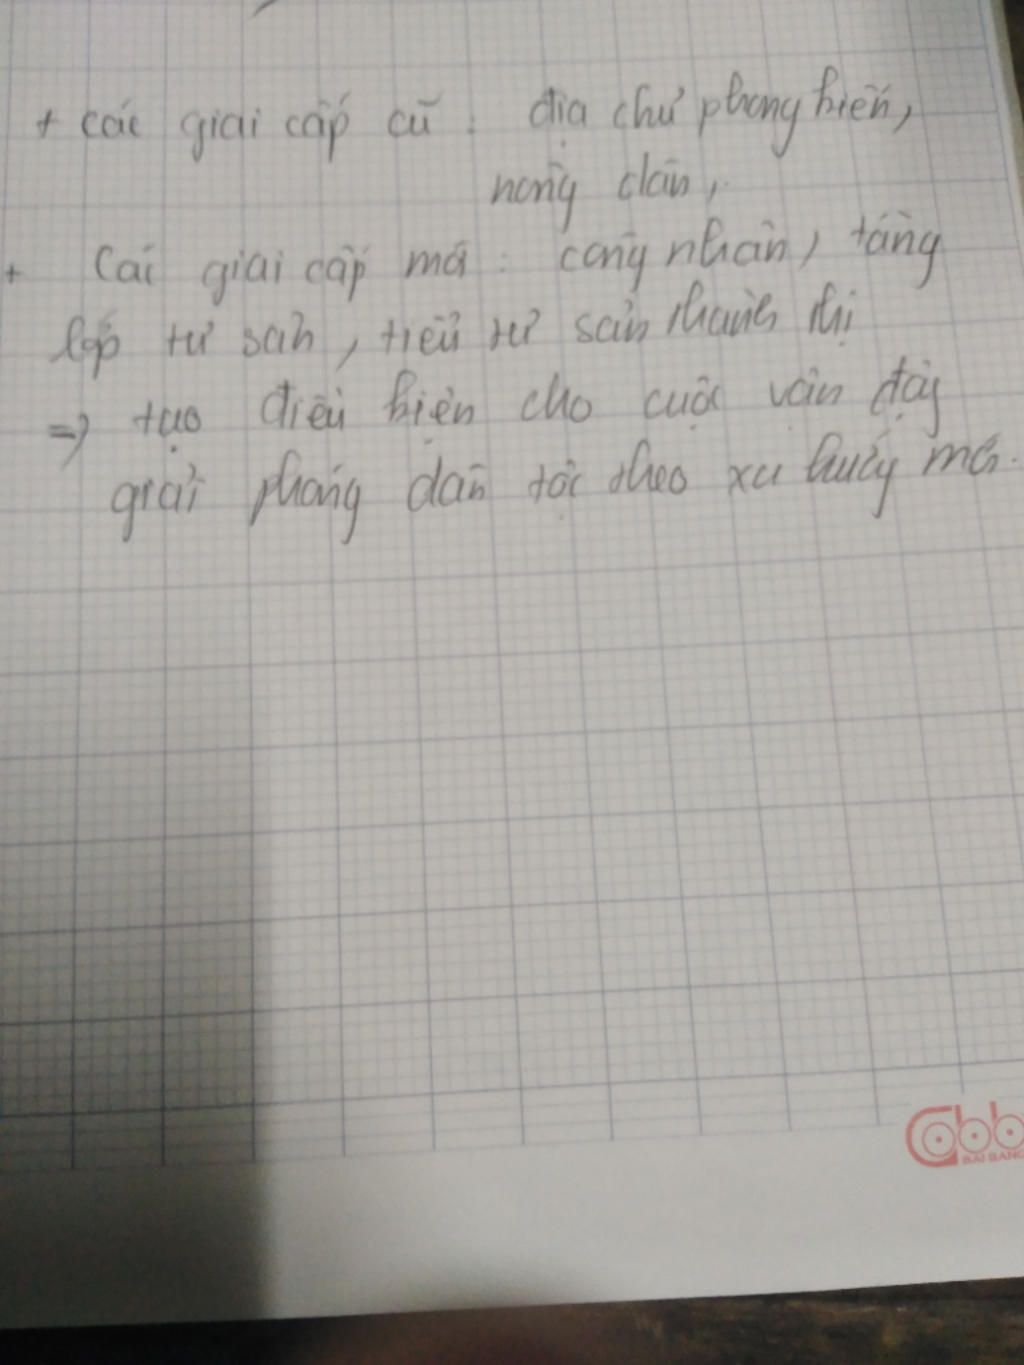 + các giai cấp cũ : địa chủ phong kiến,
nông dân,
+ Các giai cấp mới : công nhân, tầng
lớp tư sản, tiểu tư sản thành thị
=> tạo điều kiện cho cuộc vận động
giải phóng dân tộc theo xu hướng mới.
Cabb
BAI BANG